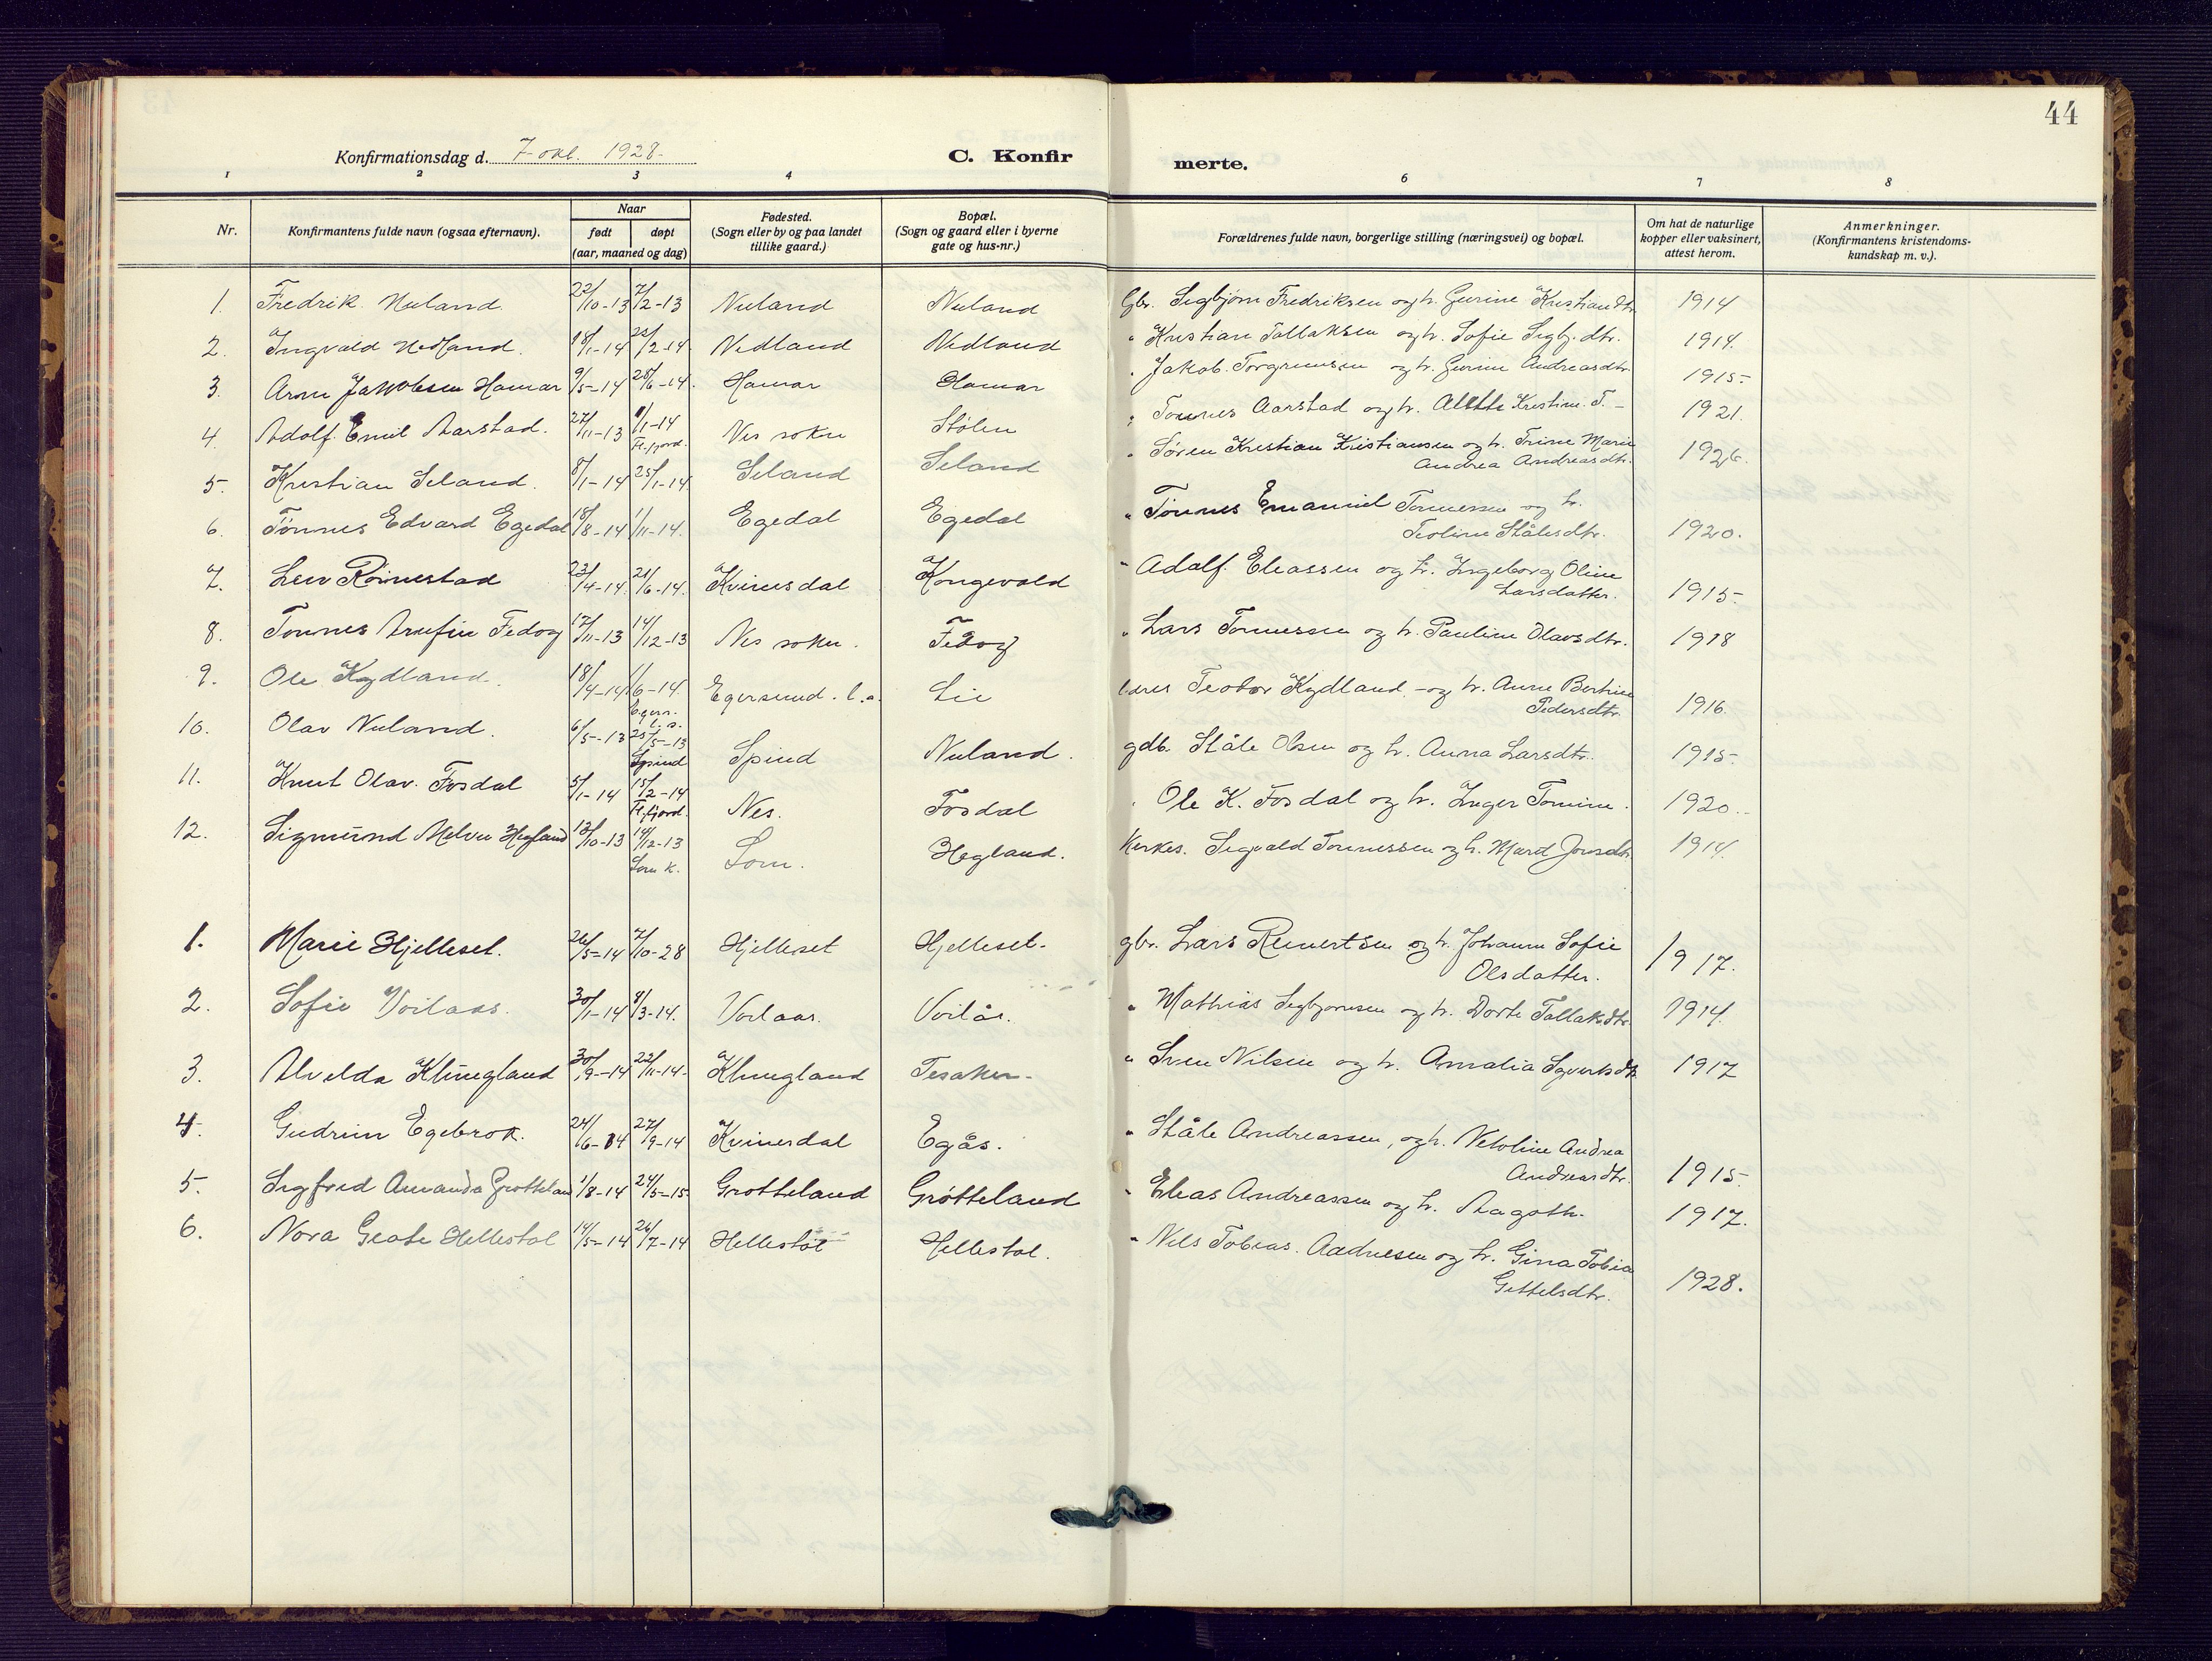 44
Konfirmationsdag d. 7 okt. 1928.
C. Konfirmerte.
1 2 3 4 6 7 8
Nr. Konfirmantens fulde navn (ogsaa efternavn). Naar født døpt (aar, maaned og dag) Fødested. (Sogn eller by og paa landet tillike gaard.) Bopæl. (Sogn og gaard eller i byerne gate og hus-nr.) Forældrenes fulde navn, borgerlige stilling (næringsvei) og bopæl. Om hat de naturlige kopper eller vaksinert, attest herom. Anmerkninger. (Konfirmantens kristendoms-kundskap m. v.).
1. Fredrik Nuland. 22/10-13 7/2-13 Nuland Nuland Gbr. Sigbjørn Fredriksen og h. Gurine Kristiandtr. 1914
2. Ingvald Nedland. 18/1-14 22/2-14. Nedland Nedland " Kristian Tallaksen og h. Sofie Sigbj.dtr. 1914.
3. Arne Jakobsen Hamar 9/5-14 28/6-14. Hamar Hamar " Jakob Torgrimsen og h. Gurine Andreasdtr. 1915.
4. Adolf Emil Aarstad. 27/11-13 1/1-14 Fl.fjord. Nes sokn Stølen " Tønnes Aarstad og h. Alette Kristine T. - 1921.
5. Kristian Seland. 8/1-14 25/1-14 Seland Seland " Søren Kristian Kristiansen og h. Trine Marie Andrea Andreasdtr. 1926.
6. Tønnes Edvard Egedal 18/8-14 1/11-14. Egedal Egedal " Tønnes Emanuel Tønnessen og h. Teoline Ståhlesdtr. 1920.
7. Leiv Røinestad 23/4-14. 21/6-14. Kvinesdal Kongevold " Adolf Eleassen og h. Ingeborg Oline Larsdatter. 1915.
8. Tønnes Arnfin Fedog 17/11-13 14/12-13 Nes sokn. Fedog " Lars Tønnessen og h. Pauline Olavsdtr. 1918
9. Ole Kydland. 18/4-14 1/6-14. Egers. l.s. Egersund l.s. Lie Teodor Kydland - og h. Anne Bertine Pedersdtr. 1916.
10. Olav Nuland. 6/5-13 25/5-13 Spind Spind Nuland. gdb. Ståle Olsen og h. Anna Larsdtr. 1915.
11. Knut Olav Fosdal 5/1-14 15/2-14 Fl.fjord. Nes. Fosdal " Ole K. Fosdal og h. Inger Tomine. 1920.
12. Sigmund Melvin Hegland 13/10-13 14/12-13 Lom k. Lom. Hegland. Kirkes. Sigvald Tønnessen og h. Marit Jonsdtr. 1914.
1. Marie Hjelleset. 26/5-14 7/10-28 Hjelleset Hjelleset. gbr. Lars Reinertsen og h. Johanne Sofie Olsdatter. 1917.
2. Sofie Voilaas. 30/1-14 8/3-14. Voilaas. Voilås. " Mathias Sigbjørnsen og h. Dorte Tallaksdtr. 1914.
3. Alvilda Klungland 30/9-14 22/11-14. Klungland Tesaker. " Sven Nilsen og h. Amalia Syvertsdtr. 1917
4. Gudrun Egebrok. 24/6-14 27/9-14 Kvinesdal Egås. " Ståle Andreassen, og h. Netoline Andrea Andreasdtr. 1915.
5. Sigfrid Amanda Grøtteland 1/8-14 24/5-15 Grøtteland Grøtteland " Eleas Andreassen og h. Aagoth. 1917.
6. Nora Geate Hellestøl 14/5-14 26/7-14 Hellestøl Hellestøl. " Nils Tobias Aadnesen og h. Gina Tobia Gettelsdtr. 1928.